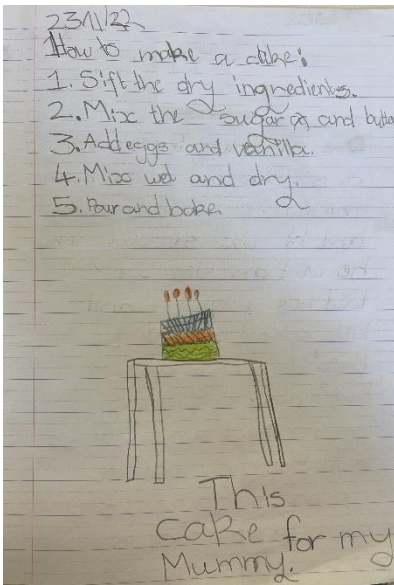 23/11/22
How to make a cake:
1. Sift the dry ingredients.
2. Mix the sugar and butter
3. Add eggs and vanilla.
4. Mix wet and dry.
5. Pour and bake
This
cake for my
Mummy.